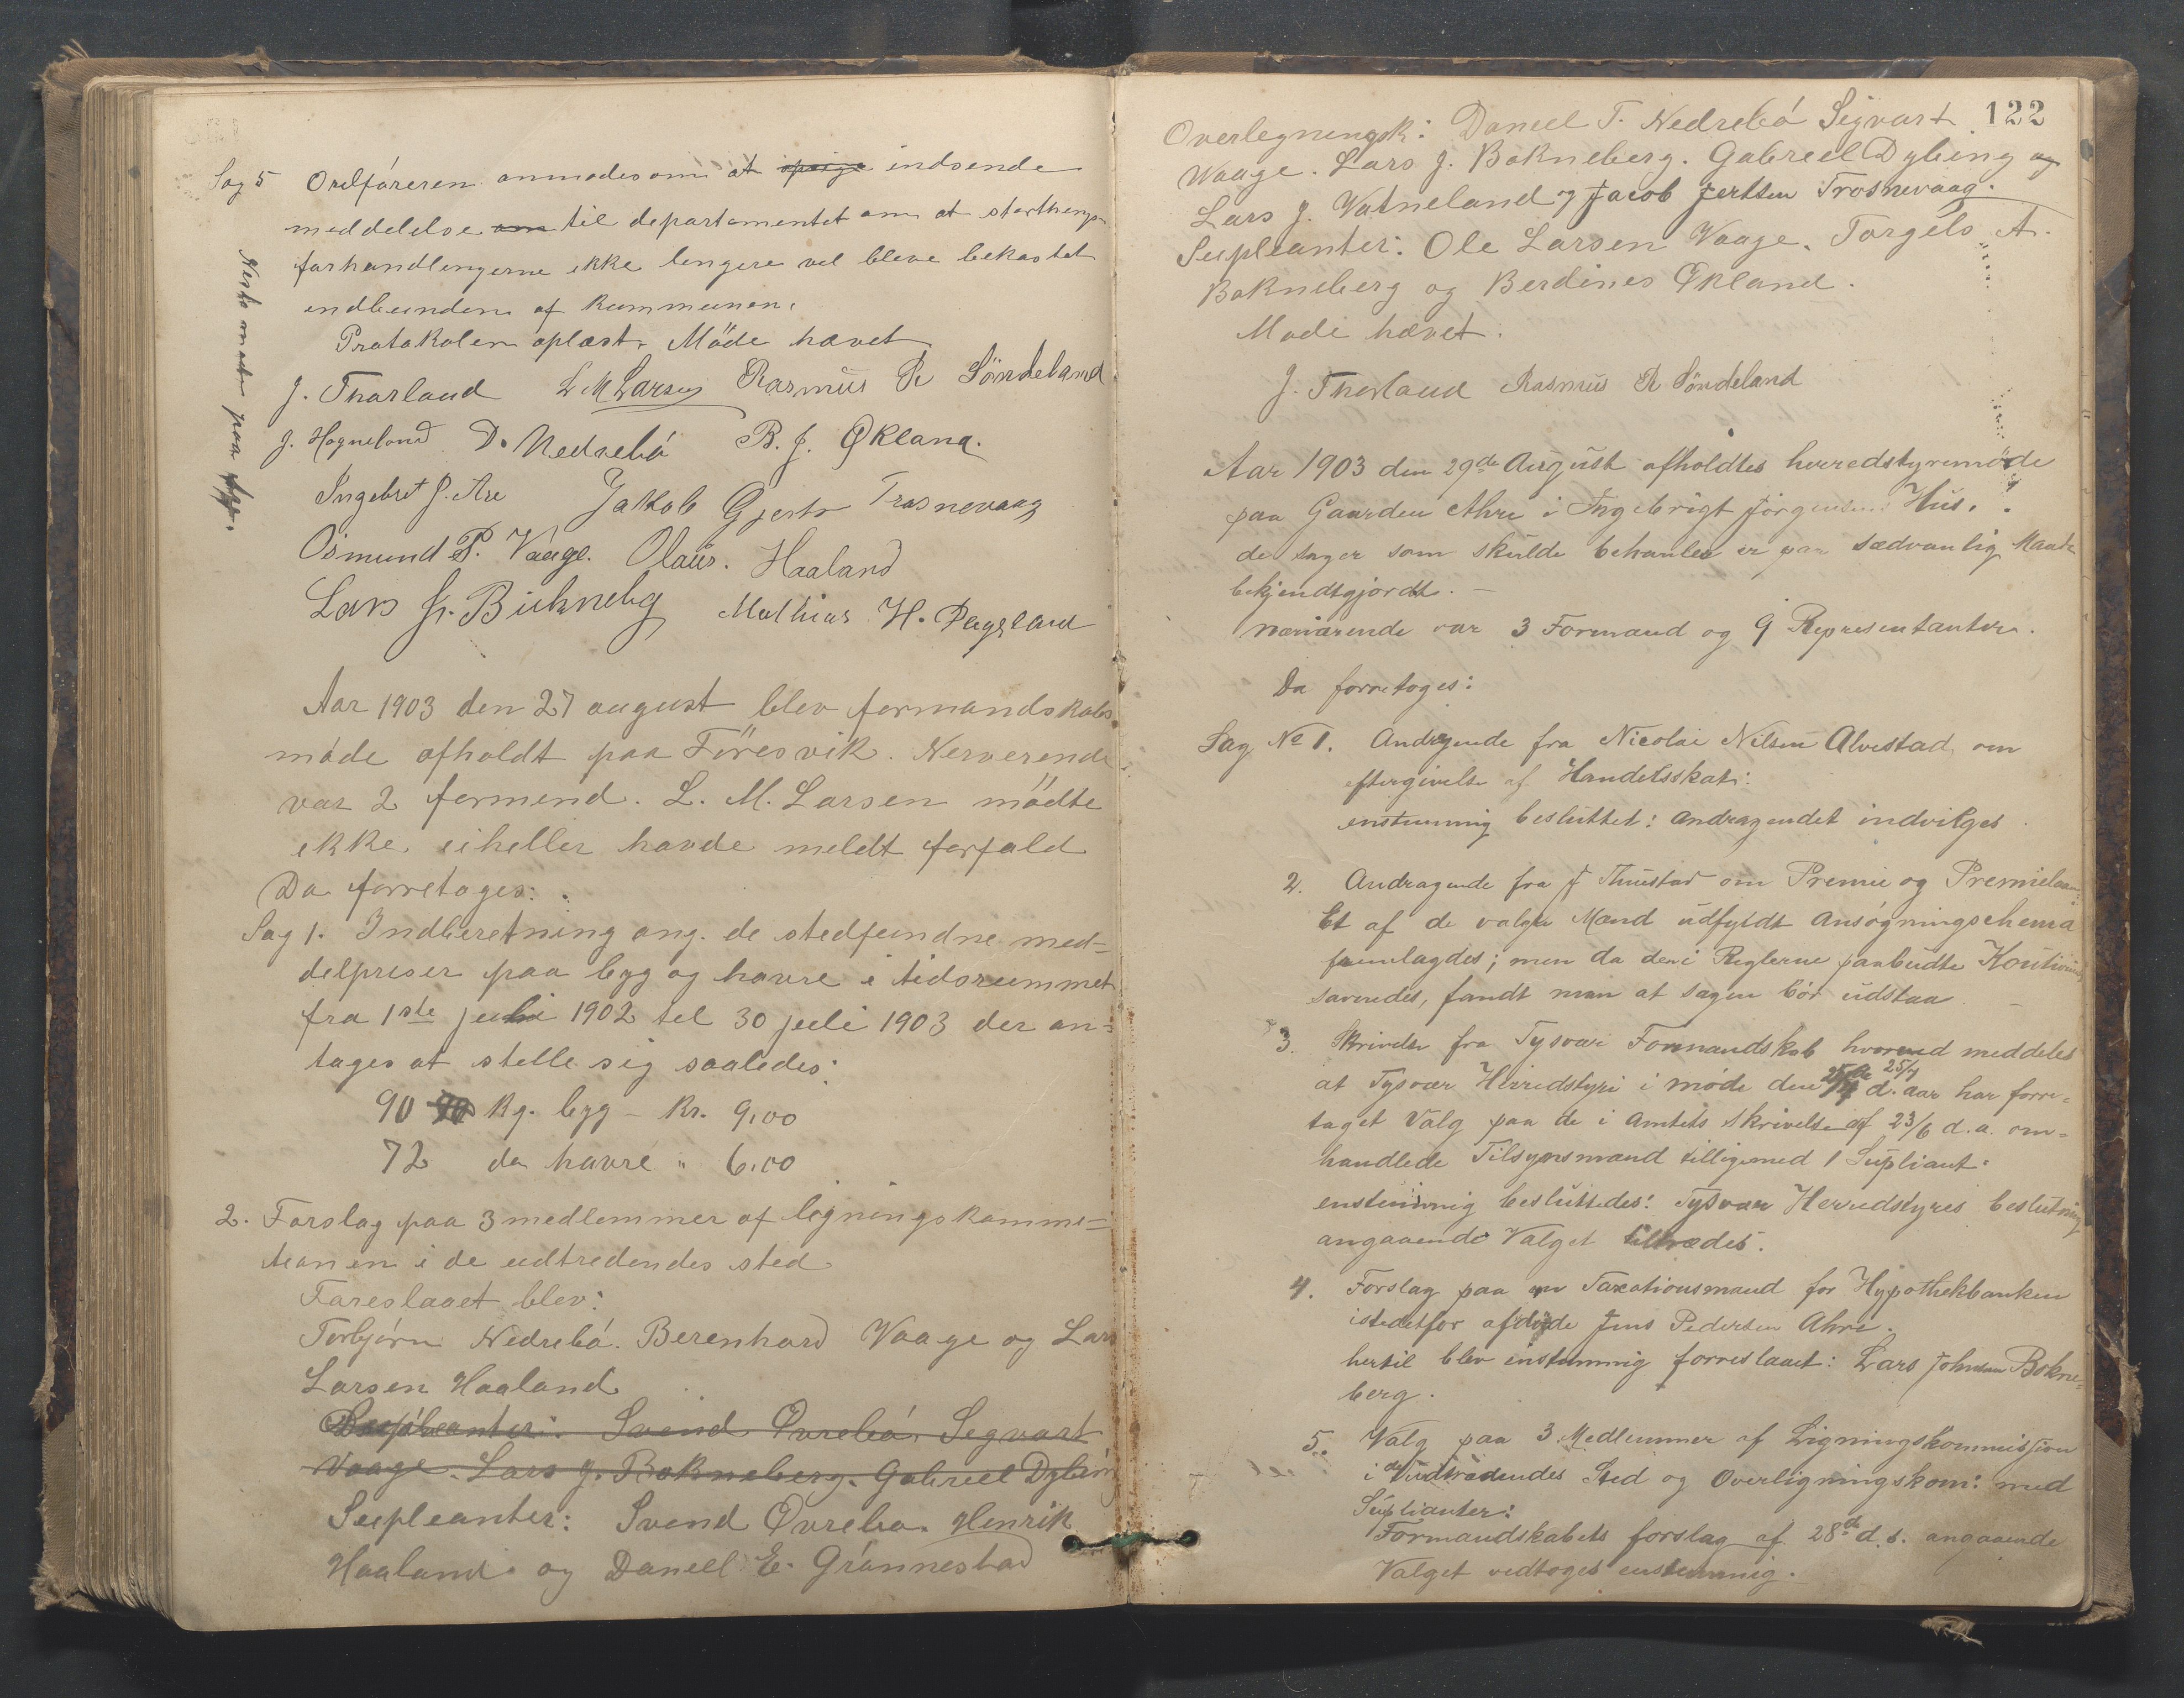 Sag 5 Ordføreren anmodes om at indsende
meddelelse om til departementet om at storthings-
forhandlingerne ikke lengere vil bleve bekostet
indbunden af kommunen.
Protokolen oplæst. Möde hævet
J. Thorland L M Larsen Rasmus R Söndeland
J. Hogneland D. Nedrebó B. J. Økland.
Ingebret J. Are Jakob Gjerts Trosnevaag
Osmund P. Vaage. Olaus. Haaland
Lars J. Buknebg Mathias H. Pegeland
Neste mode paa
Aar 1903 den 27 august blev formandskabs
móde afholdt paa Föresvik. Nerverende
var 2 formend. L. M. Larsen mödte
ikke, eiheller havde meldt forfald
Da forretoges:
Sag 1. Indberetning ang. de stedfundne med-
delpriser paa byg og havre i tidsrummet
fra 1ste juli 1902 til 30 juli 1903 der an-
tages at stelle sig saaledes:
90 Kg. byg - Kr. 9,00
72 do havre " 6,00
2. Forslag paa 3 medlemmer af ligningskommi-
sionen i de udtredendes sted
Foreslaaet blev:
Torbjórn Nedrebó. Berenhard Vaage og Lars
Larsen Haaland
Supleanter: Svend Øvrebó, Segvart
Vaage. Lars J. Bokneberg. Gabriel Dybing
Supleanter: Svend Øvrebo. Henrik
Haaland. og Daneel E. Grónnestad
122
Overlegningsk: Daneel T. Nedrebó Sigvart
Waage. Lars J. Bokneberg. Gabreel Dybing og
Lars J. Vatneland og Jacob Jertsen Trosnevaag.
Supleanter: Ole Larsen Vaage. Torgels A.
Bokneberg og Berdines Økland.
Mode hævet.
J. Thorland Rasmus R Söndeland
Aar 1903 den 29de August afholdtes herredstyremöde
paa Gaarden Ahre i Ingebrigt Jörgensens Hus.
de sager som skulde behanles er paa sædvanlig Maade
bekjendtgjordt. -
nærværende var 3 Formænd og 9 Representanter.
Da forretoges:
Sag No 1. Andragende fra Nicolai Nilsen Alvestad om
eftergivelse af Handelsskat:
enstemmig besluttet: andragendet indvilges
2. Andragende fra J Thuestad om Premie og Premielaan:
Et af de valgte Mænd udfyldt Ansøgningschema
fremlagdes; men da den i Reglerne paabudte Koution
savnedes, fandt man at sagen bör udstaa -
3. Skrivelse fra Tysvær Formandskab hvorved meddeles
at Tysvær Herredstyre i møde den 25/7 d. aar har forre-
taget Valg paa de i Amtets skrivelse af 23/6 d.a. om-
handlede Tilsynsmænd tilligemed 1 Supliant:
enstemmig besluttedes: Tysvær Herredstyres beslutning
angaaende Valget tiltrædes.
4. Forslag paa en Taxationsmand for Hypothekbanken
istedetfor afdøde Jens Pedersen Ahre.
hertil blev enstemmig forreslaaet: Lars Johnsen Bokne-
berg.
5. Valg paa 3 Medlemmer af Ligningskommissjon
i de Vudtrædendes Sted og Overligningskom: med
Suplianter:
Formandskabets forslag af 28de d.s. angaaende
Valget vedtoges enstemmig.